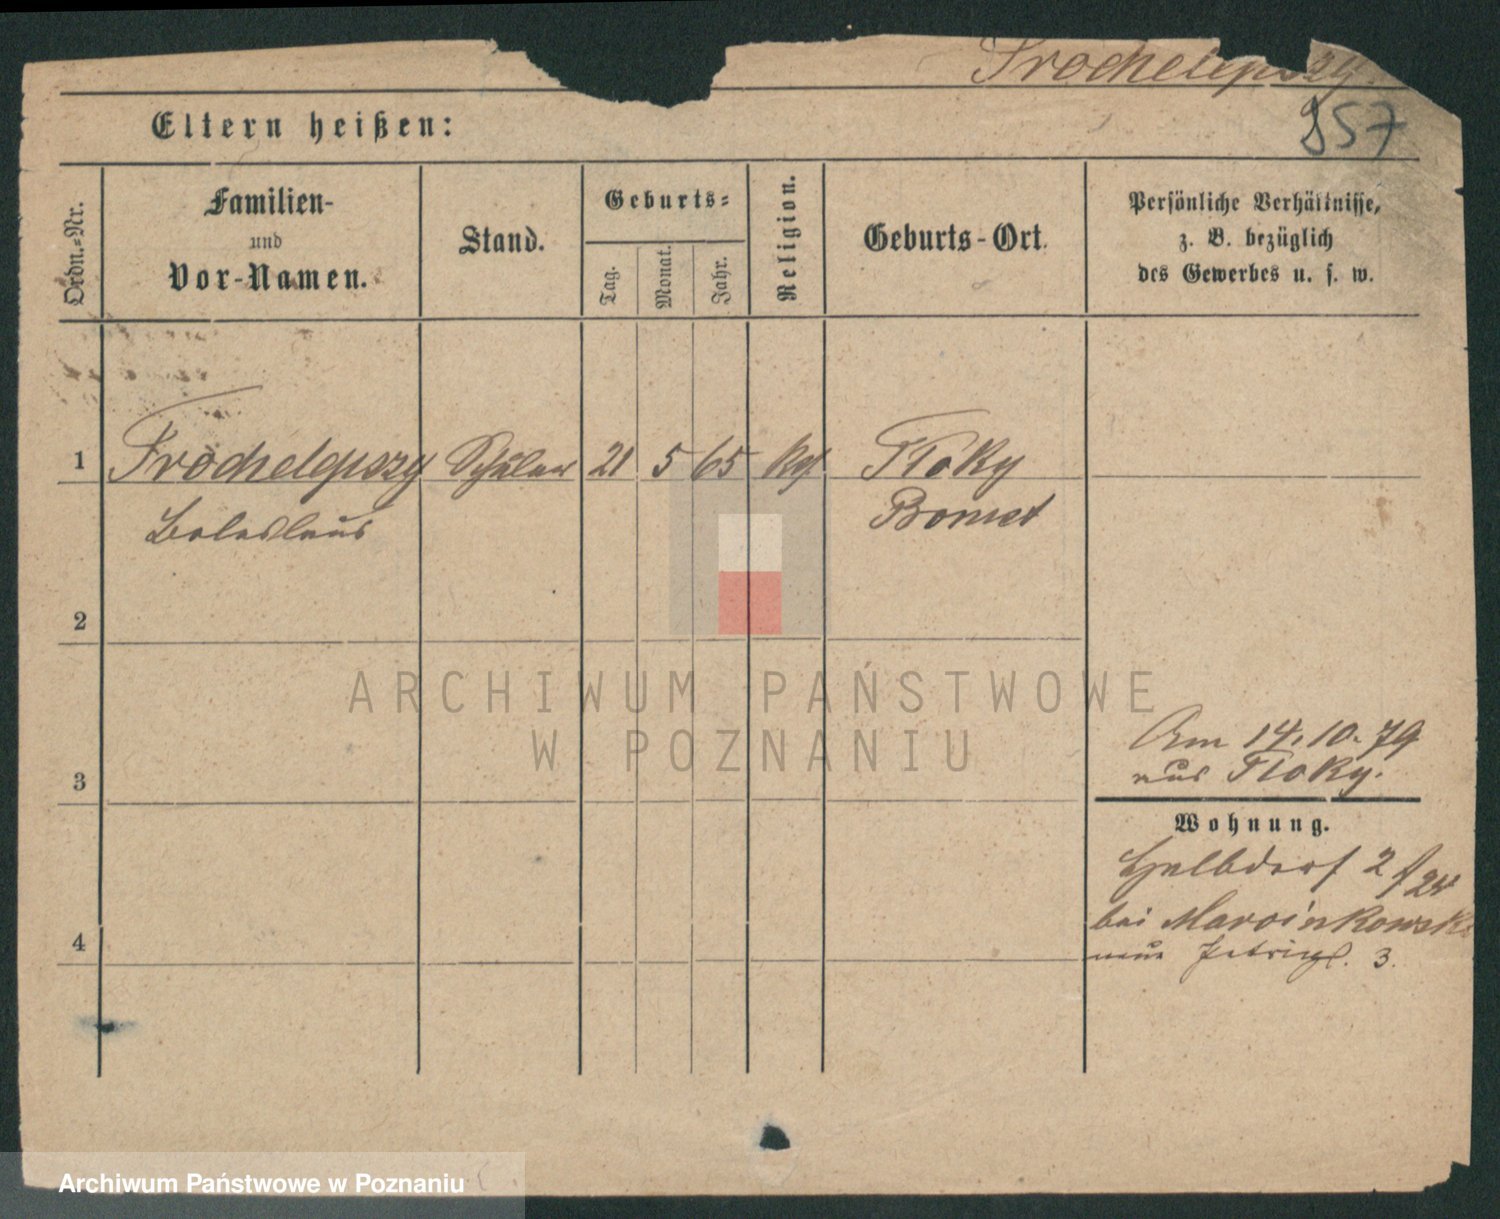 Trochelepszy
857
Eltern heißen:
Ordn.=Nr.
Familien-
und
Vor-Namen.
Stand.
Geburts=
Tag.
Monat.
Jahr.
Religion.
Geburts-Ort.
Persönliche Verhältnisse,
z. B. bezüglich
des Gewerbes u. s. w.
1
Trochelepszy
Schüler
21
5
65
Tloky
Boleslaus
Bomst
2
3
4
Am 14. 10. 79
aus Tloky.
Wohnung.
Halbdorf 2
bei Marcinkowski
neue 3.
ARCHIWUM PAŃSTWOWE
W POZNANIU
Archiwum Państwowe w Poznaniu